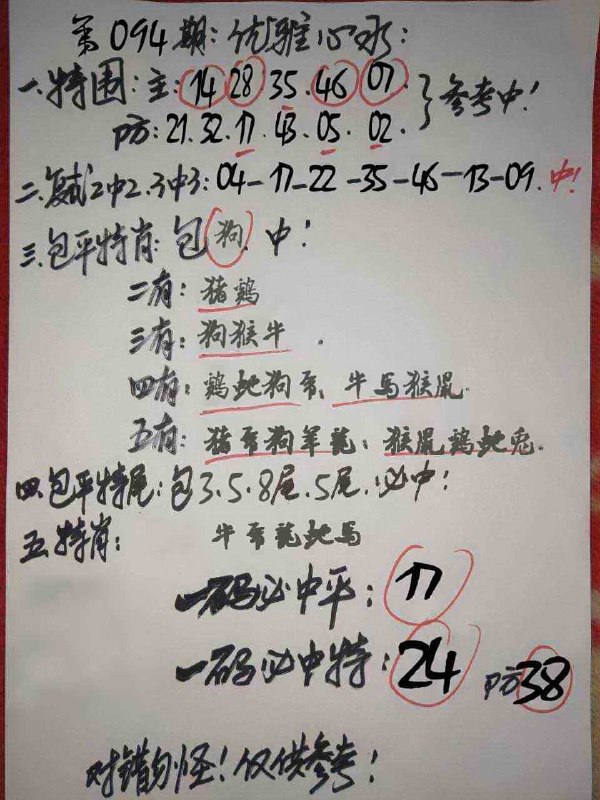 第094期:优雅心水:
一.特围:主:14 28 35.46 07.
防:21.32.17.43.05.02.
参考中!
二.复式2中2.3中3:04-17-22-35-46-13-09.中!
三.包平特肖:包狗.中!
二有:猪鷄
三有:狗猴牛.
四有:鷄蛇狗.牛馬猴鼠.
五有:猪狗羊龍;猴鼠鷄蛇兔.
四.包平特尾:包3.5.8尾.5尾.必中!
五.特肖:牛龍蛇馬
一码必中平:17
一码必中特:24 防38
对错勿怪!仅供参考!